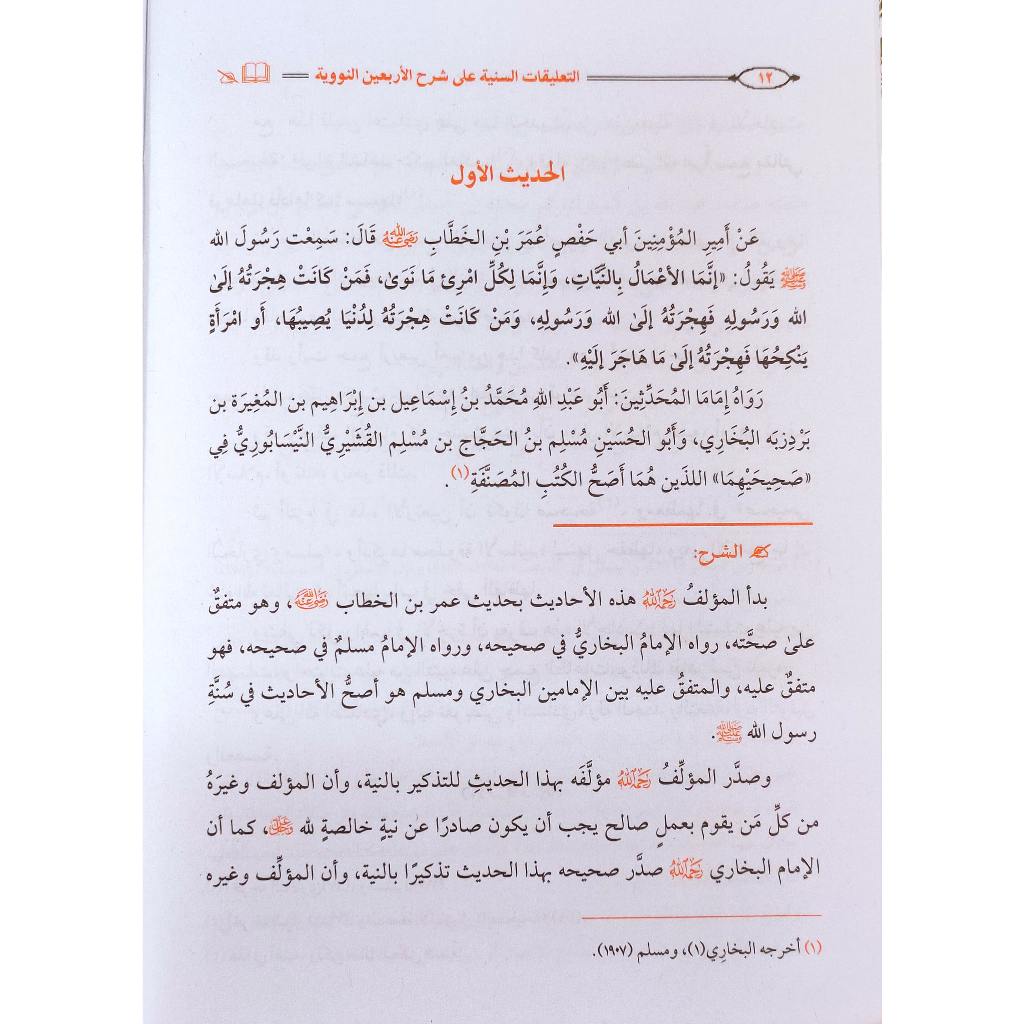 ١٢ التعليقات السنية على شرح الأربعين النووية
الحديث الأول
عَنْ أَمِيرِ المُؤْمِنِينَ أبي حَفْصٍ عُمَرَ بْنِ الخَطَّابِ رَضِيَ اللَّهُ عَنْهُ قَالَ: سَمِعْت رَسُولَ الله
صَلَّى اللَّهُ عَلَيْهِ وَسَلَّمَ يَقُولُ: «إنَّمَا الأعْمَالُ بِالنِّيَّاتِ، وَإِنَّمَا لِكُلِّ امْرِئ مَا نَوَىٰ، فَمَنْ كَانَتْ هِجْرَتُهُ إلَىٰ
الله وَرَسُولِهِ فَهِجْرَتُهُ إلَىٰ الله وَرَسُولِهِ، وَمَنْ كَانَتْ هِجْرَتُهُ لِدُنْيَا يُصِيبُهَا، أَو امْرَأَةٍ
يَنْكِحُهَا فَهِجْرَتُهُ إلَىٰ مَا هَاجَرَ إلَيْهِ».
رَوَاهُ إمَامَا المُحَدِّثِينَ: أَبُو عَبْدِ اللهِ مُحَمَّدُ بنُ إِسْمَاعِيل بن إِبْرَاهِيم بن المُغِيرَة بن
بَرْدِزبَه البُخَارِي، وَأَبُو الحُسَيْنِ مُسْلِم بنُ الحَجَّاج بن مُسْلِم القُشَيْرِيُّ النَّيْسَابُورِيُّ فِي
«صَحِيحَيْهِمَا» اللذَين هُمَا أَصَحُّ الكُتُبِ المُصَنَّفَةِ(١).
الشرح:
بدأ المؤلفُ رَحِمَهُ اللَّهُ هذه الأحاديث بحديث عمر بن الخطاب رَضِيَ اللَّهُ عَنْهُ، وهو متفقٌ
علىٰ صحَّته، رواه الإمامُ البخاريُّ في صحيحه، ورواه الإمامُ مسلمٌ في صحيحه، فهو
متفقٌ عليه، والمتفقُ عليه بين الإمامين البخاري ومسلم هو أصحُّ الأحاديث في سُنَّةِ
رسول الله صَلَّى اللَّهُ عَلَيْهِ وَسَلَّمَ.
وصدَّر المؤلِّفُ رَحِمَهُ اللَّهُ مؤلَّفَه بهذا الحديثِ للتذكير بالنية، وأن المؤلف وغيرَهُ
من كلِّ مَن يقوم بعملٍ صالح يجب أن يكون صادرًا عن نيةٍ خالصةٍ لله عَزَّ وَجَلَّ، كما أن
الإمام البخاري رَحِمَهُ اللَّهُ صدَّر صحيحه بهذا الحديث تذكيرًا بالنية، وأن المؤلِّف وغيره
(١) أخرجه البخاري (١)، ومسلم (١٩٠٧).